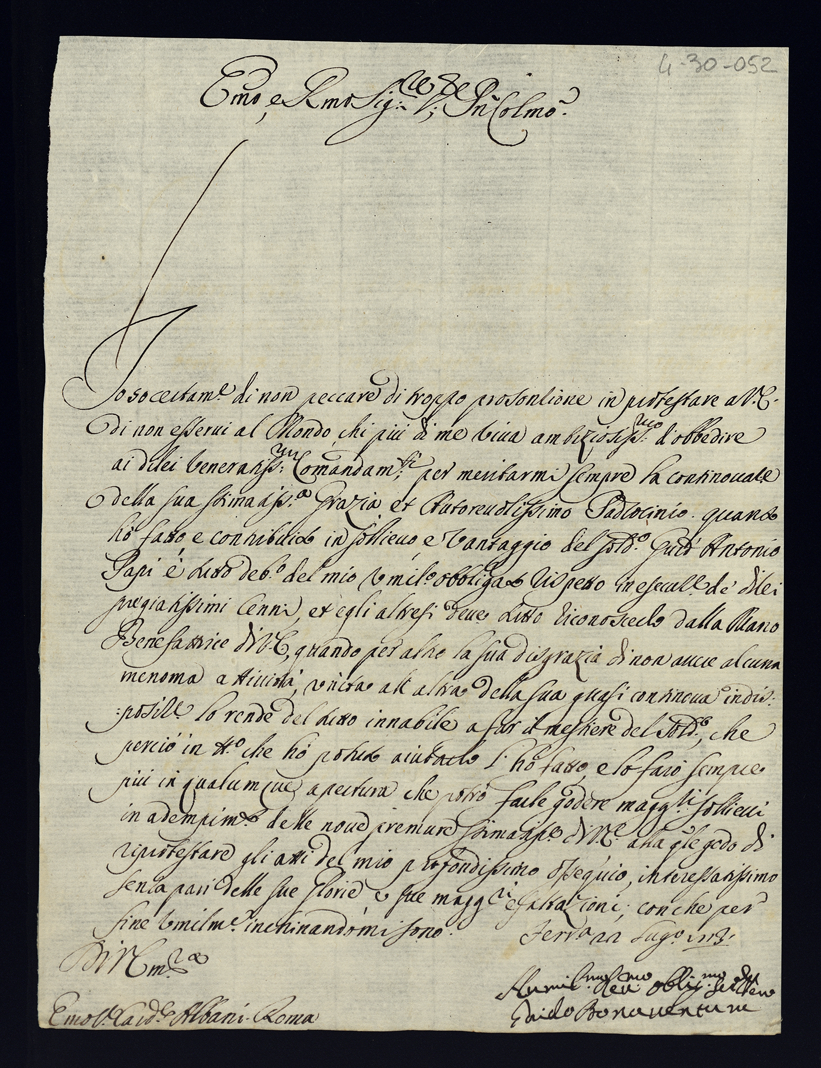 4-30-052
Emo, e Rmo Sig.re Pn Colmo.
Io so certam.e di non peccare di troppo prosontione in protestare a V.E.
di non esservi al Mondo, chi più di me viva ambiziosiss.mo d'obbedire
ai di lei veneratiss.mi Comandam.ti per meritarmi sempre la continouate
della sua stimatiss.a Grazia et Autorevolissimo Padrocinio. quanto
hò fatto e contribuito in sollievo e Vantaggio del sold.o Guid' Antonio
Papi é tutto deb.o del mio umil.o obbligato rispetto in de' di lei
pregiatissimi Cenni, et egli altresi deve tutto riconoscerlo dalla Mano
Benefattrice di V.E, quando per altro la sua disgrazia di non avere alcuna
menoma attività, unita all'altra della sua quasi continova indis:
:posiz.e lo rende del tutto innabile a far il mestiere del Sold.o, che
perciò in tt.o che hò potuto aiutarlo l'hò fatto, e lo farò sempre
più in qualumque apertura che potrò farle godere magg.ri sollievi
in adempim.to delle nove premure stimatiss.e di V.E. alla q.le godo di
riprotestare gli atti del mio profondissimo ossequio, interessatissimo
senza pari delle sue Glorie e sue magg.ri esaltazioni; con che per
fine umilm.e inchinandomi sono.
Ferra 22 Lug.o
Di V Em.za
Humil.mo Dev.mo obblig.mo
Guido Bonaventura
Emo S.r Card.e Albani. Roma